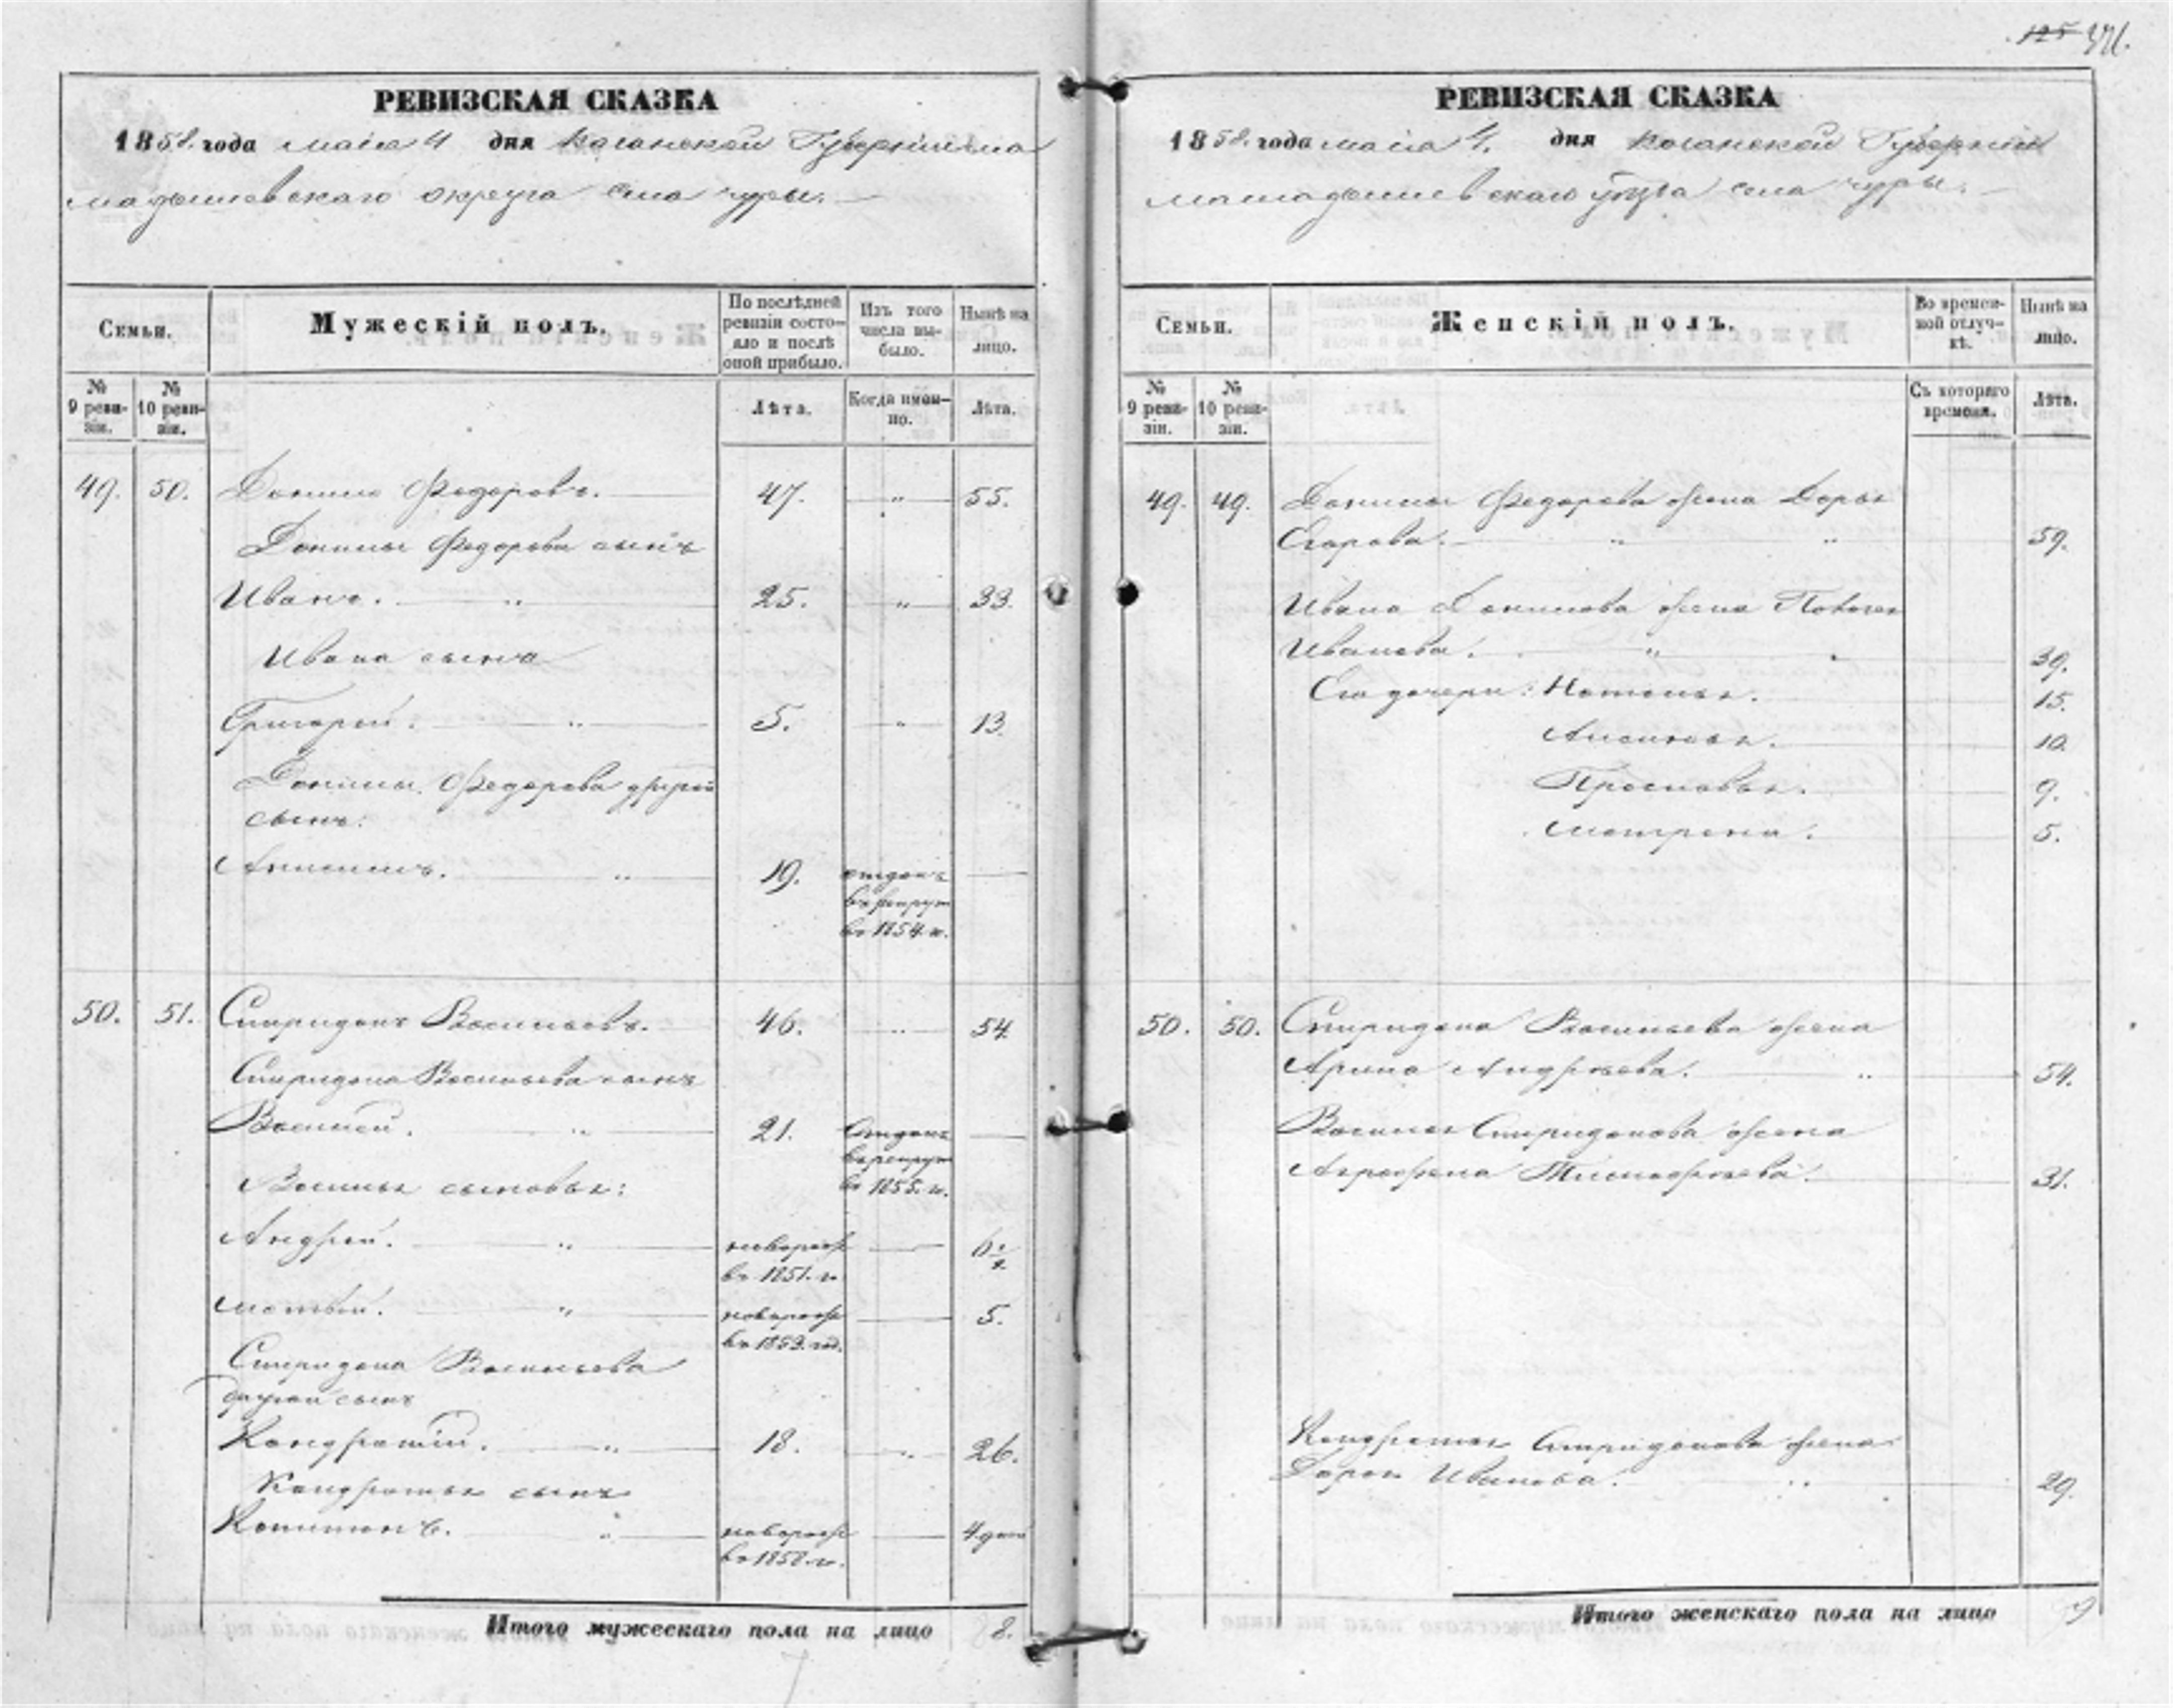 125 371.
РЕВИЗСКАЯ СКАЗКА
1858. года маія 4 дня казанской Губерніи ма
мадышевскаго округа села чуры.
Семьи.
Мужескій полъ.
По послѣдней ревизіи состояло и послѣ оной прибыло.
Изъ того числа выбыло.
Нынѣ на лицо.
№ 9 ревизіи.
№ 10 ревизіи.
Лѣта.
Когда именно.
Лѣта.
49. 50. Данило Федоровъ. 47. " 55.
Данилы Федорова сынъ
Иванъ. " 25. " 33.
Ивана сынъ
Григорей. " 5. " 13
Данилы Федорова другой
сынъ:
19. отданъ
в рекруты
въ 1854. г.
50. 51. Спиридонъ Васильевъ. 46. " 54.
Спиридона Васильева сынъ
Василей. " 21. Отданъ
в рекруты
въ 1855. г.
Василья сыновья:
Андрей. " новорож 6 1/2
въ 1851. г.
матвей. " новорож 5.
въ 1853. год.
Спиридона Васильева
другой сынъ
Кондратій. " 18. " 26.
Кондратья сынъ
Капитонъ. " новорож 4 дней
въ 1858. г.
Итого мужескаго пола на лицо 8.
РЕВИЗСКАЯ СКАЗКА
1858. года маія 4. дня казанской Губерніи
мамадышевскаго уѣзда села чуры.
Семьи.
Женскій полъ.
Во временной отлучкѣ.
Нынѣ на лицо.
№ 9 ревизіи.
№ 10 ревизіи.
Съ котораго времени.
Лѣта.
49. 49. Данилы Федорова жена Дарья
Егорова. " " 59.
Ивана Данилова жена
Иванова. " 39.
Его дочери: Наталья. 15.
10.
Просковья. 9.
матрена. 5.
50. 50. Спиридона Васильева жена
Арина Андрѣева. " 54.
Василья Спиридонова жена
Аграфена Тимофѣева. 31.
Кондратья Спиридонова жена
Дарья Иванова. " 29.
Итого женскаго пола на лицо 9